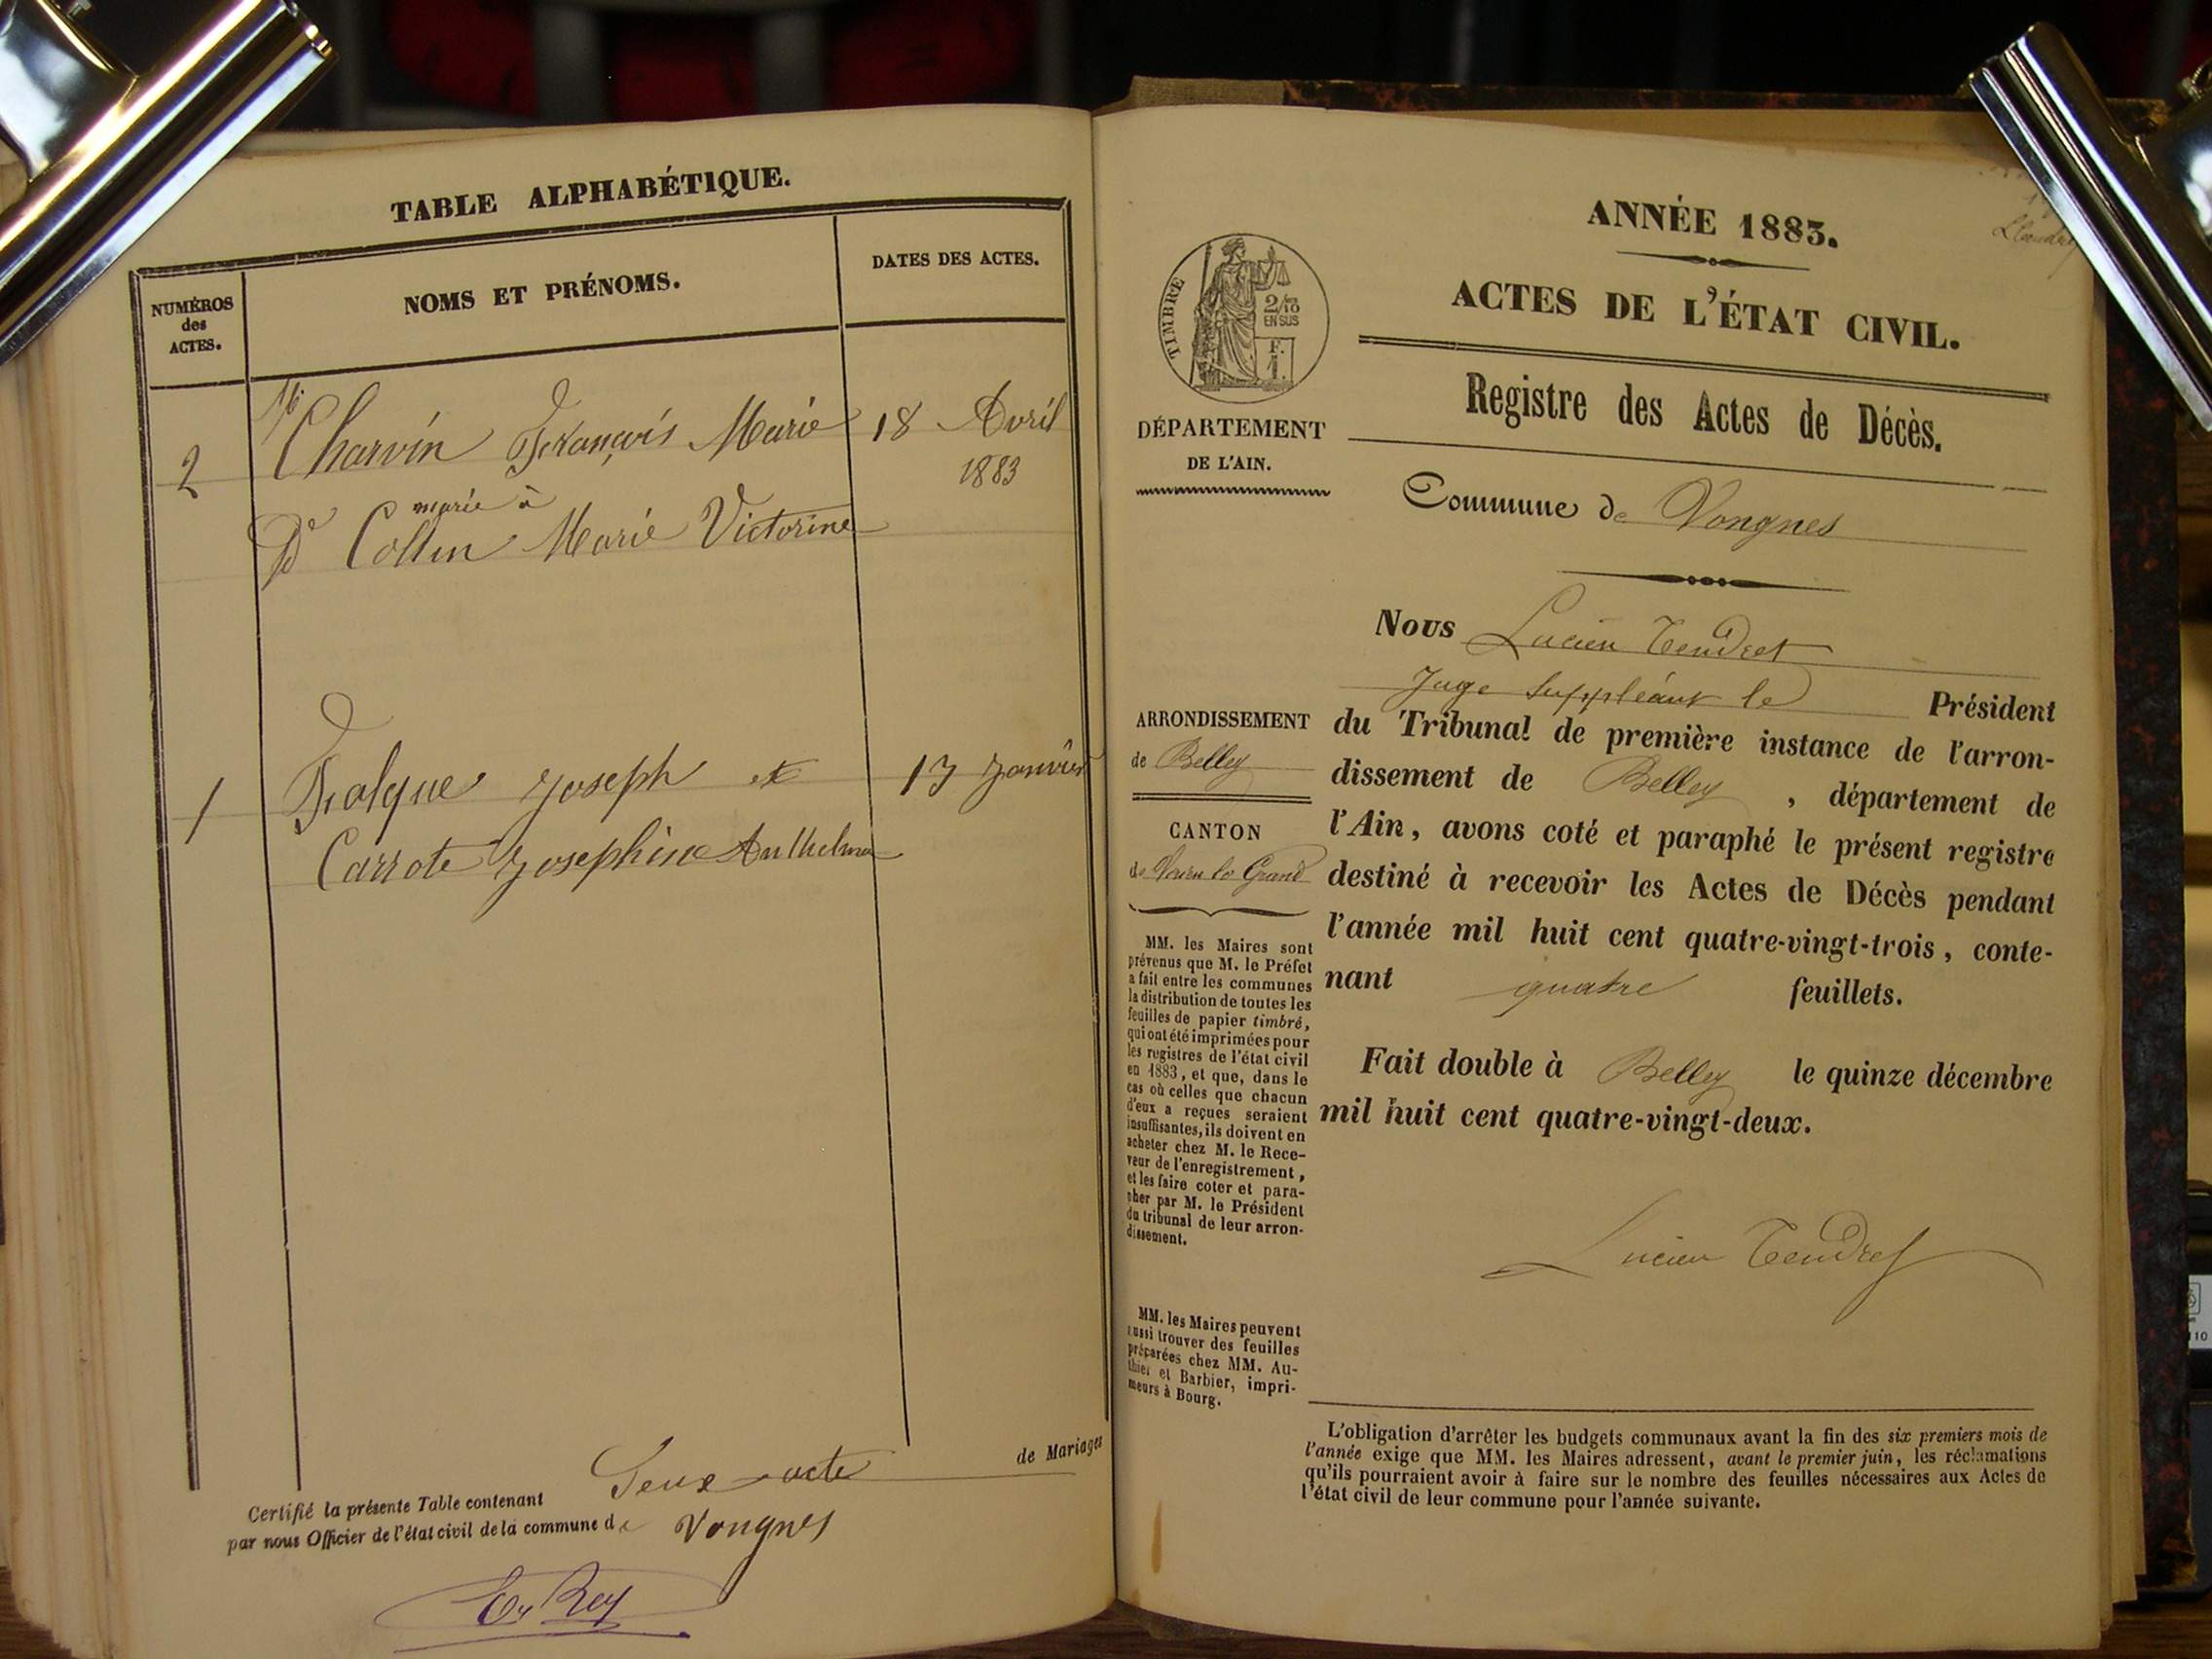 TABLE ALPHABÉTIQUE.
NUMÉROS
des
ACTES.
NOMS ET PRÉNOMS.
DATES DES ACTES.
2
Charvin François Marie
18 Avril
1883
marié à
De Collin Marie Victorine
1
Falque Joseph et
13 Janvier
Carrote Joséphine Anthelme
Certifié la présente Table contenant Deux acte de Mariages
par nous Officier de l'état civil de la commune de Vongnes
Rey
ANNÉE 1883.
ACTES DE L'ÉTAT CIVIL.
Registre des Actes de Décès.
TIMBRE
2/10
EN SUS
F.
1.
DÉPARTEMENT
DE L'AIN.
Commune de Vongnes
Nous Lucien Tendret
Juge Suppléant le Président
du Tribunal de première instance de l'arron-
dissement de Belley, département de
l'Ain, avons coté et paraphé le présent registre
destiné à recevoir les Actes de Décès pendant
l'année mil huit cent quatre-vingt-trois, conte-
nant quatre feuillets.
Fait double à Belley le quinze décembre
mil huit cent quatre-vingt-deux.
Lucien Tendret
ARRONDISSEMENT
de Belley
CANTON
de Virieu le Grand
MM. les Maires sont
prévenus que M. le Préfet
a fait entre les communes
la distribution de toutes les
feuilles de papier timbré,
qui ont été imprimées pour
les registres de l'état civil
en 1883, et que, dans le
cas où celles que chacun
d'eux a reçues seraient
insuffisantes, ils doivent en
acheter chez M. le Rece-
veur de l'enregistrement,
et les faire coter et para-
pher par M. le Président
du tribunal de leur arron-
dissement.
MM. les Maires peuvent
aussi trouver des feuilles
préparées chez MM. Au-
thier et Barbier, impri-
meurs à Bourg.
L'obligation d'arrêter les budgets communaux avant la fin des six premiers mois de
l'année exige que MM. les Maires adressent, avant le premier juin, les réclamations
qu'ils pourraient avoir à faire sur le nombre des feuilles nécessaires aux Actes de
l'état civil de leur commune pour l'année suivante.